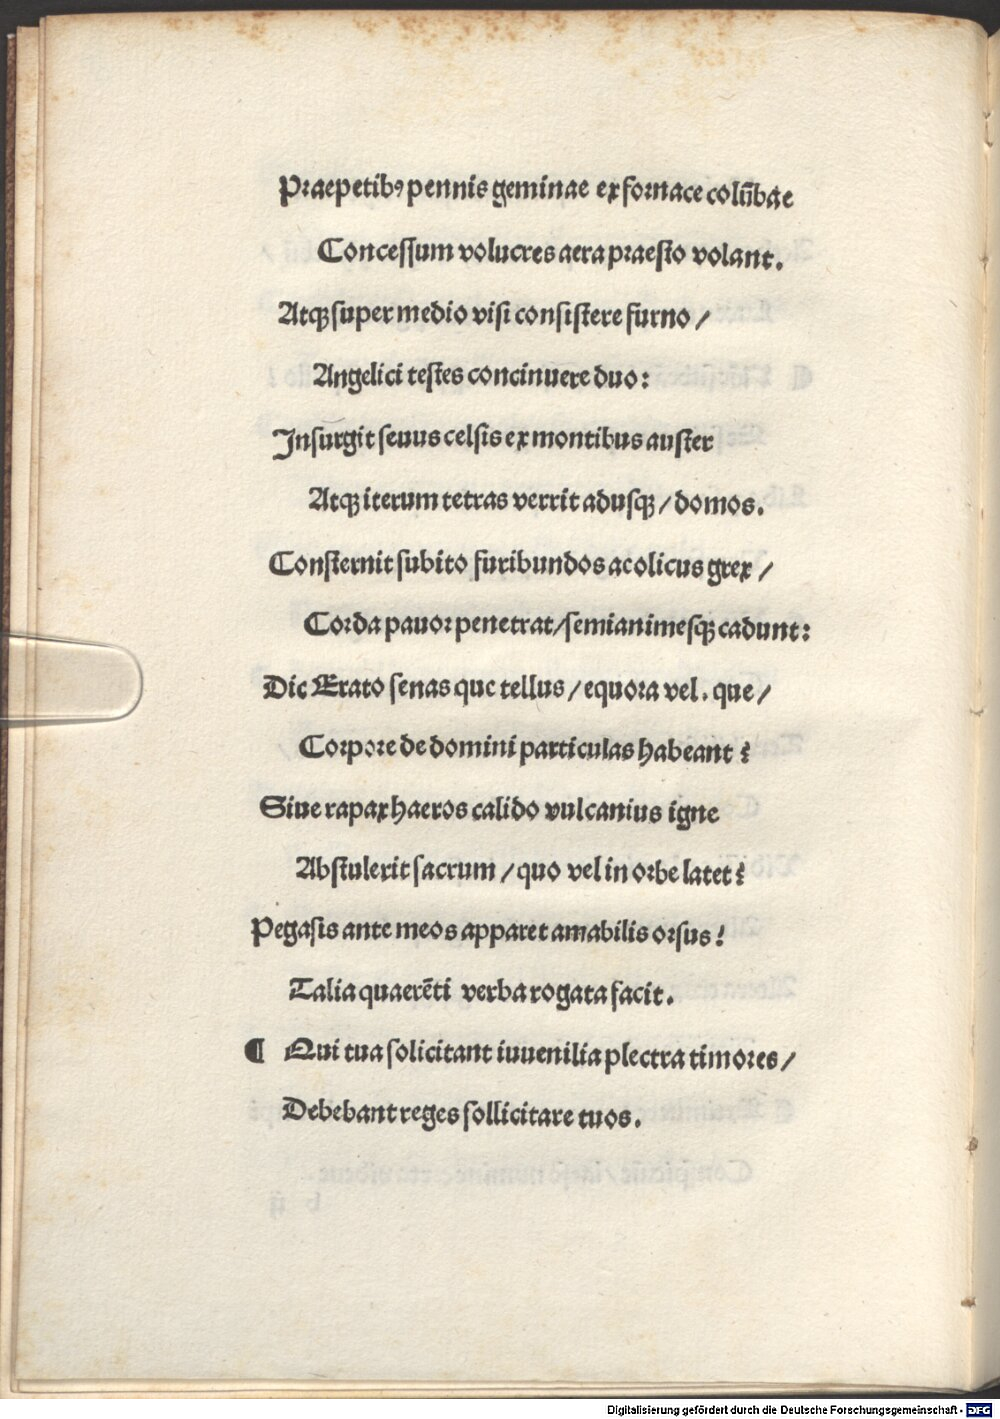 Praepetibꝰ pennis geminae ex fornace colūbae
Concessum volucres aera praesto volant.
Atqꝫ super medio visi consistere furno /
Angelici testes concinuere duo:
Insurgit seuus celsis ex montibus auster
Atqꝫ iterum tetras verrit adusqꝫ / domos.
Consternit subito furibundos acolicus grex /
Corda pauor penetrat / semianimesqꝫ cadunt:
Dic Erato senas que tellus / equora vel. que /
Corpore de domini particulas habeant?
Siue rapax haeros calido vulcanius igne
Abstulerit sacrum / quo vel in orbe latet?
Pegasis ante meos apparet amabilis orsus!
Talia quaerēti verba rogata facit.
¶ Qui tua solicitant iuuenilia plectra timores /
Debebant reges sollicitare tuos.
Digitalisierung gefördert durch die Deutsche Forschungsgemeinschaft - DFG